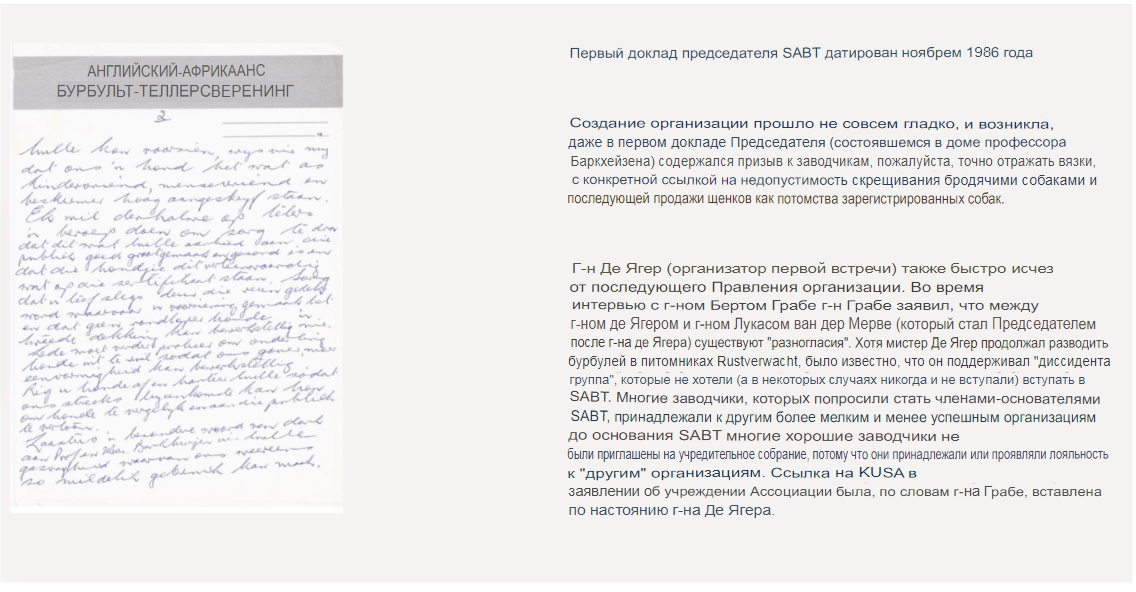 АНГЛИЙСКИЙ-АФРИКААНС
БУРБУЛЬТ-ТЕЛЛЕРСВЕРЕНИНГ
2
hulle kan voorsien, wys vir my
dat ons 'n hond het wat as
kindervriend, mensevriend en
beskermer hoog aangeskryf staan.
Ek wil derhalwe op telers
'n beroep doen om sorg te dra
dat dit wat hulle aanbied aan die
publiek goed grootgemaak en gesond is en
dat die hondjie dit verteenwoordig
wat op die sertifikaat staan. Sorg
dat u teef slegs deur die reun gedek
word waarvoor u voorsiening gemaak het
en dat geen rondloper honde 'n
tweede dekking kan bewerkstellig nie.
Lede moet verder probeer om onderling
honde uit te ruil sodat ons gou meer
eenvormigheid kan bewerkstellig.
honde
ons streeks byeenkomste kan
om honde te vergelyk en aan die publiek
te vertoon.
Laastens 'n besondere woord van dank
aan Prof en Mev. Barkhuizen vir hulle
gasvryheid waarvan ons weereens
so mildelik gebruik kan maak.
Первый доклад председателя SABT датирован ноябрем 1986 года
Создание организации прошло не совсем гладко, и возникла,
даже в первом докладе Председателя (состоявшемся в доме профессора
Баркхейзена) содержался призыв к заводчикам, пожалуйста, точно отражать вязки,
с конкретной ссылкой на недопустимость скрещивания бродячими собаками и
последующей продажи щенков как потомства зарегистрированных собак.
Г-н Де Ягер (организатор первой встречи) также быстро исчез
от последующего Правления организации. Во время
интервью с г-ном Бертом Грабе г-н Грабе заявил, что между
г-ном де Ягером и г-ном Лукасом ван дер Мерве (который стал Председателем
после г-на де Ягера) существуют "разногласия". Хотя мистер Де Ягер продолжал разводить
бурбулей в питомниках Rustverwacht, было известно, что он поддерживал "диссидента
группа", которые не хотели (а в некоторых случаях никогда и не вступали) вступать в
SABT. Многие заводчики, которых попросили стать членами-основателями
SABT, принадлежали к другим более мелким и менее успешным организациям
до основания SABT многие хорошие заводчики не
были приглашены на учредительное собрание, потому что они принадлежали или проявляли лояльность
к "другим" организациям. Ссылка на KUSA в
заявлении об учреждении Ассоциации была, по словам г-на Грабе, вставлена
по настоянию г-на Де Ягера.